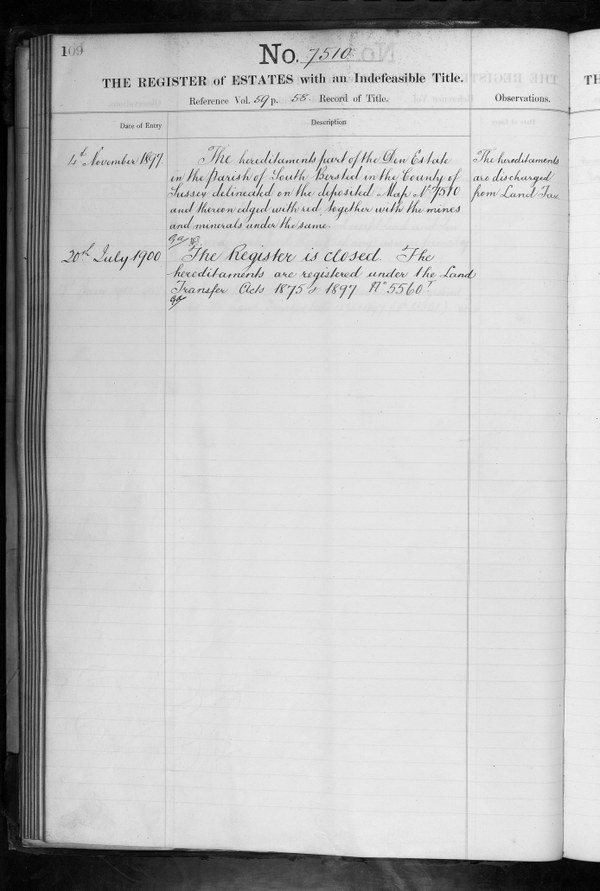 109
No. 7510
THE REGISTER of ESTATES with an Indefeasible Title.
Reference Vol. 59 p. 58. Record of Title.
Observations.
Date of Entry
Description
4th November 1897
The hereditaments part of the Den Estate
in the parish of South Bersted in the County of
Sussex delineated on the deposited Map No 7510
and thereon edged with red together with the mines
and minerals under the same.
The hereditaments
are discharged
from Land Tax
20th July 1900
The Register is closed. The
hereditaments are registered under the Land
Transfer Acts 1875 & 1897 No 5560
TH